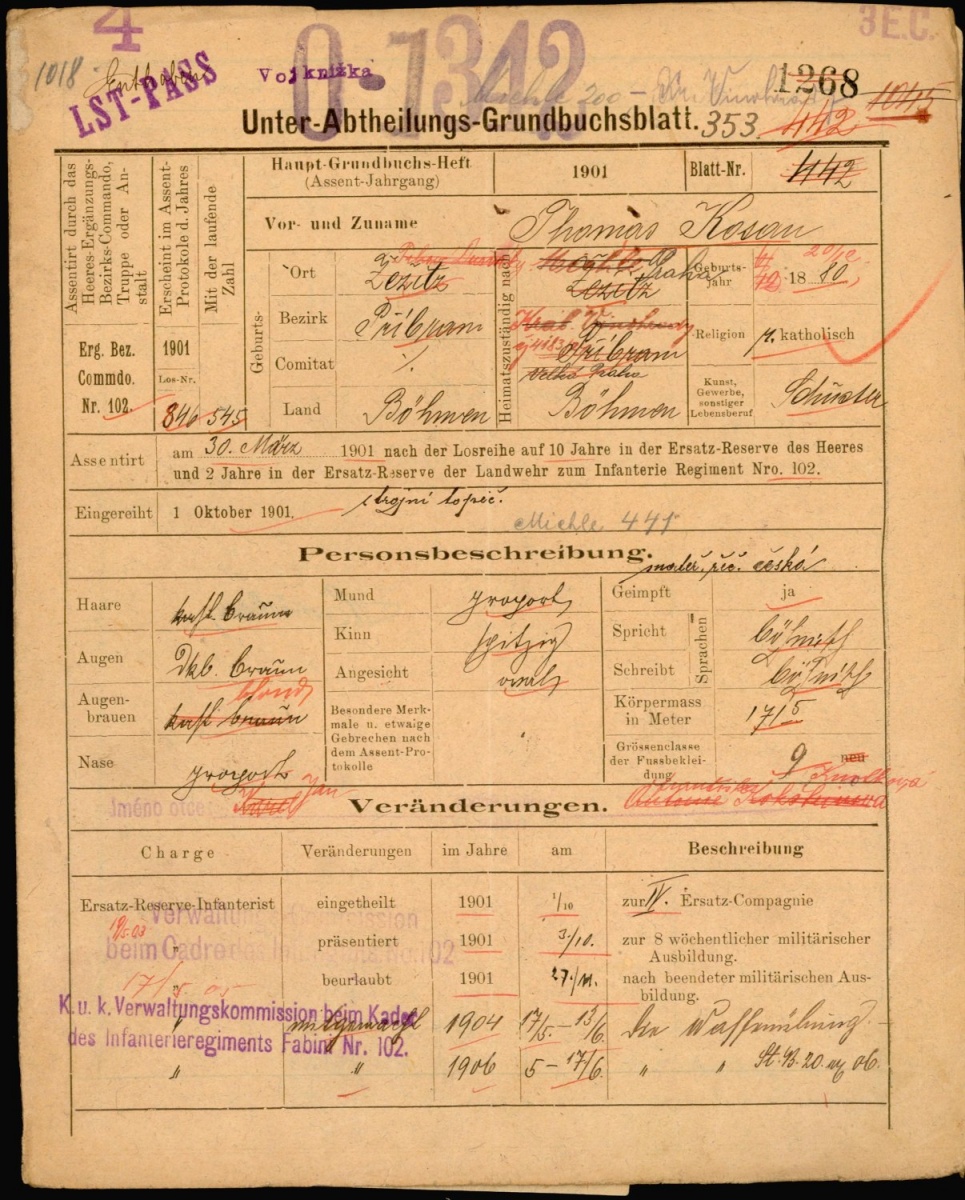 4
3 E.C.
1018
LST-PASS
Vojknížka
0-1342
Michle 200 -
1268
Unter-Abtheilungs-Grundbuchsblatt.
353
442
1045
Assentirt durch das Heeres-Ergänzungs-Bezirks-Commando, Truppe oder Anstalt
Erscheint im Assent-Protokole d. Jahres
Mit der laufende Zahl
Haupt-Grundbuchs-Heft
(Assent-Jahrgang)
1901
Blatt-Nr.
442
Vor- und Zuname
Thomas Kosan
Geburts-
Ort
Žezitz
Heimatszuständig nach
Praha
Žezitz
Geburts-
jahr
20/12
1880
Bezirk
Příbram
Král. Vinohrady
Příbram
Velká Praha
Religion
r. katholisch
Erg. Bez.
Commdo.
Nr. 102.
1901
Los-Nr.
846 545
Comitat
Land
Böhmen
Böhmen
Kunst,
Gewerbe,
sonstiger
Lebensberuf
Schuster
Assentirt
am 30. März 1901 nach der Losreihe auf 10 Jahre in der Ersatz-Reserve des Heeres
und 2 Jahre in der Ersatz-Reserve der Landwehr zum Infanterie Regiment Nro. 102.
Eingereiht
1 Oktober 1901.
strojní topič.
Michle 441
Personsbeschreibung.
mateř. řeč. česká
Haare
kast. braun
Mund
proport.
Geimpft
ja
Augen
dkl. braun
Kinn
spitzig
Sprachen
Spricht
böhmisch
Augen-
brauen
blond
kast. braun
Angesicht
oval
Schreibt
böhmisch
Besondere Merk-
male u. etwaige
Gebrechen nach
dem Assent-Pro-
tokolle
Körpermass
in Meter
1 71 5
Nase
proport.
Grössenclasse
der Fussbeklei-
dung
9
neu
Jméno otce
Karel Jan
Veränderungen.
Charge
Veränderungen
im Jahre
am
Beschreibung
Ersatz-Reserve-Infanterist
eingetheilt
1901
1/10
zur IV. Ersatz-Compagnie
19/5.03
"
präsentiert
1901
3/10.
zur 8 wöchentlicher militärischer
Ausbildung.
"
beurlaubt
1901
27/11.
nach beendeter militärischen Aus-
bildung.
17/5. 05
K. u. k. Verwaltungskommission beim Kader
des Infanterieregiments Fabini Nr. 102.
"
mitgemacht
1904
17/5. – 13/6.
die Waffenübung.
"
"
1906
5 – 17/6.
" "
St. B. 20. 06.